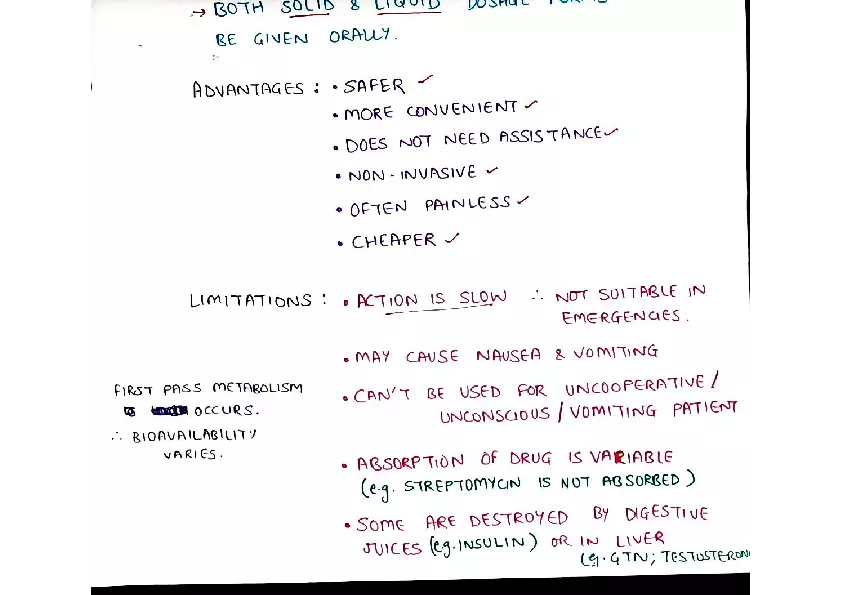 → BOTH SOLID & LIQUID DOSAGE FORMS
BE GIVEN ORALLY.
ADVANTAGES : • SAFER ✓
• MORE CONVENIENT ✓
• DOES NOT NEED ASSISTANCE ✓
• NON-INVASIVE ✓
• OFTEN PAINLESS ✓
• CHEAPER ✓
LIMITATIONS : • ACTION IS SLOW ∴ NOT SUITABLE IN
EMERGENCIES.
• MAY CAUSE NAUSEA & VOMITING
• CAN'T BE USED FOR UNCOOPERATIVE /
UNCONSCIOUS / VOMITING PATIENT
FIRST PASS METABOLISM
OCCURS.
∴ BIOAVAILABILITY
VARIES.
• ABSORPTION OF DRUG IS VARIABLE
(e.g. STREPTOMYCIN IS NOT ABSORBED)
• SOME ARE DESTROYED BY DIGESTIVE
JUICES (eg. INSULIN) OR IN LIVER
(eg. GTN; TESTOSTERON